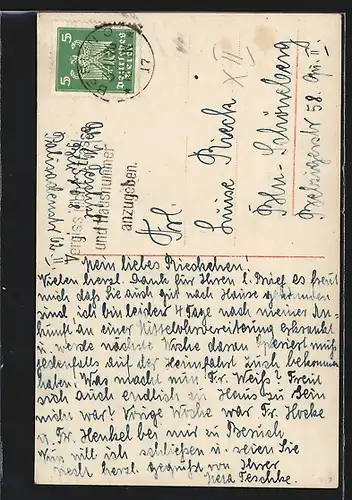 5 5
Deutsches Reich
17
XII
Vergiss nicht Straße
und Hausnummer
anzugeben.
Frl.
Luise Rieck
Bln. Schöneberg
58. Gu. II
Mein liebes Rieckchen!
Vielen herzl. Dank für Ihren l. Brief es freut
mich daß Sie auch gut nach Hause gekommen
sind, ich bin leider 4 Tage nach meiner An-
kunft an einer Mittelohrvereiterung erkrankt
u. werde nächste Woche daran operiert mich
jedenfalls auf der Heimfahrt Zuch bekommen
haben! Was macht nun Fr. Weiß? Freut
sich auch endlich zu Haus zu sein
nicht war! Vorige Woche war Fr. Hocke
u. Fr. Henkel bei mir zu Besuch
Nun will ich schließen u. seien Sie
recht herzl. gegrüßt von Ihrer
Teschke.